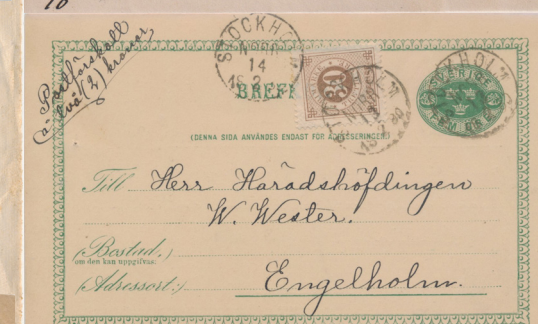 10
Postförskott
å två (2) kronor
STOCKHOLM
NORR
14
BREFK
30
STOCKHOLM
SVERIGE
FEM ÖRE
(DENNA SIDA ANVÄNDES ENDAST FÖR ADRESSERINGEN)
Till Herr Häradshöfdingen
W. Wester.
(Bostad,)
om den kan uppgifvas.
(Adressort:) Engelholm.